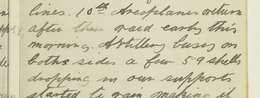 lines. 10th Aeroplanes return
after their raid early this
morning. Artillery busy on
both sides a few 5.9 shells
dropping in our supports
started to rain making it